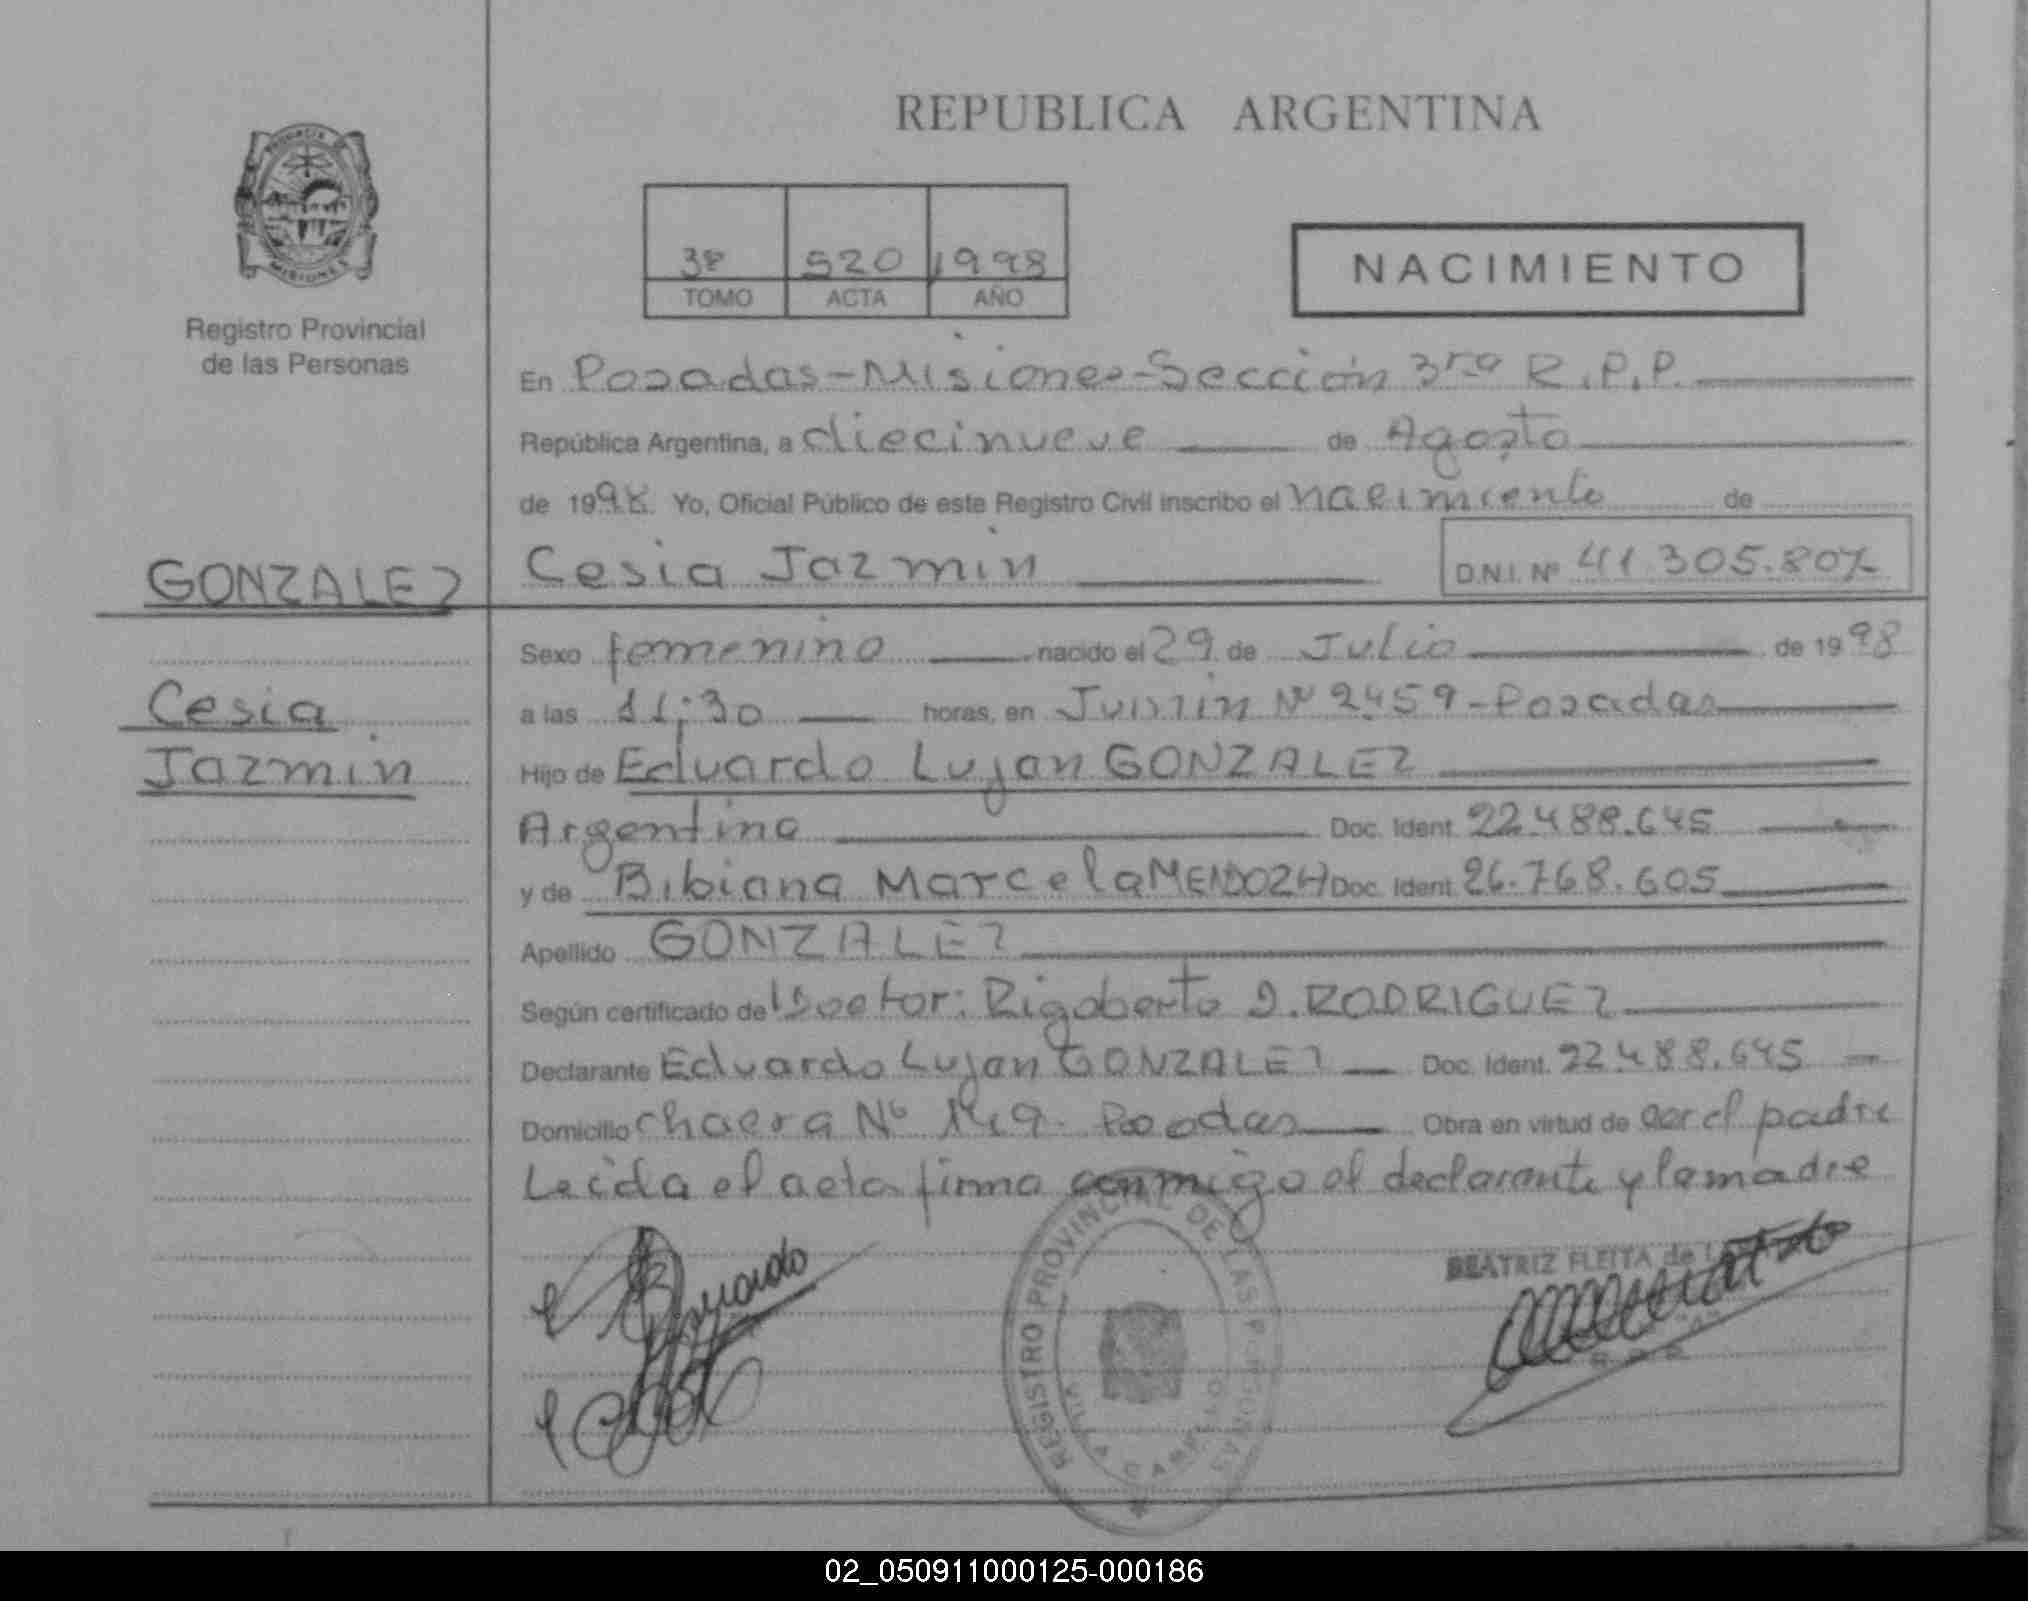 REPUBLICA ARGENTINA
PROVINCIA
MISIONES
Registro Provincial
de las Personas
38 520 1998
TOMO ACTA AÑO
NACIMIENTO
En Posadas-Misiones-Sección 3ra R.P.P.
República Argentina, a diecinueve de Agosto
de 1998. Yo, Oficial Público de este Registro Civil inscribo el nacimiento de
GONZALEZ
Cesia Jazmin D.N.I. Nº 41.305.807
Sexo femenino nacido el 29 de Julio de 1998
Cesia
a las 11:30 horas, en Junin Nº 2459-Posadas
Jazmin
Hijo de Eduardo Lujan GONZALEZ
Argentino Doc. Ident. 22.488.645
y de Bibiana Marcela MENDOZA Doc. Ident. 26.768.605
Apellido GONZALEZ
Según certificado de Doctor: Rigoberto D. RODRIGUEZ
Declarante Eduardo Lujan GONZALEZ Doc. Ident. 22.488.645
Domicilio Chacra Nº Posadas Obra en virtud de ser el padre
Leida el acta firma conmigo el declarante y la madre
REGISTRO PROVINCIAL DE LAS PERSONAS
VILLA
BEATRIZ FLEITA de
02_050911000125-000186